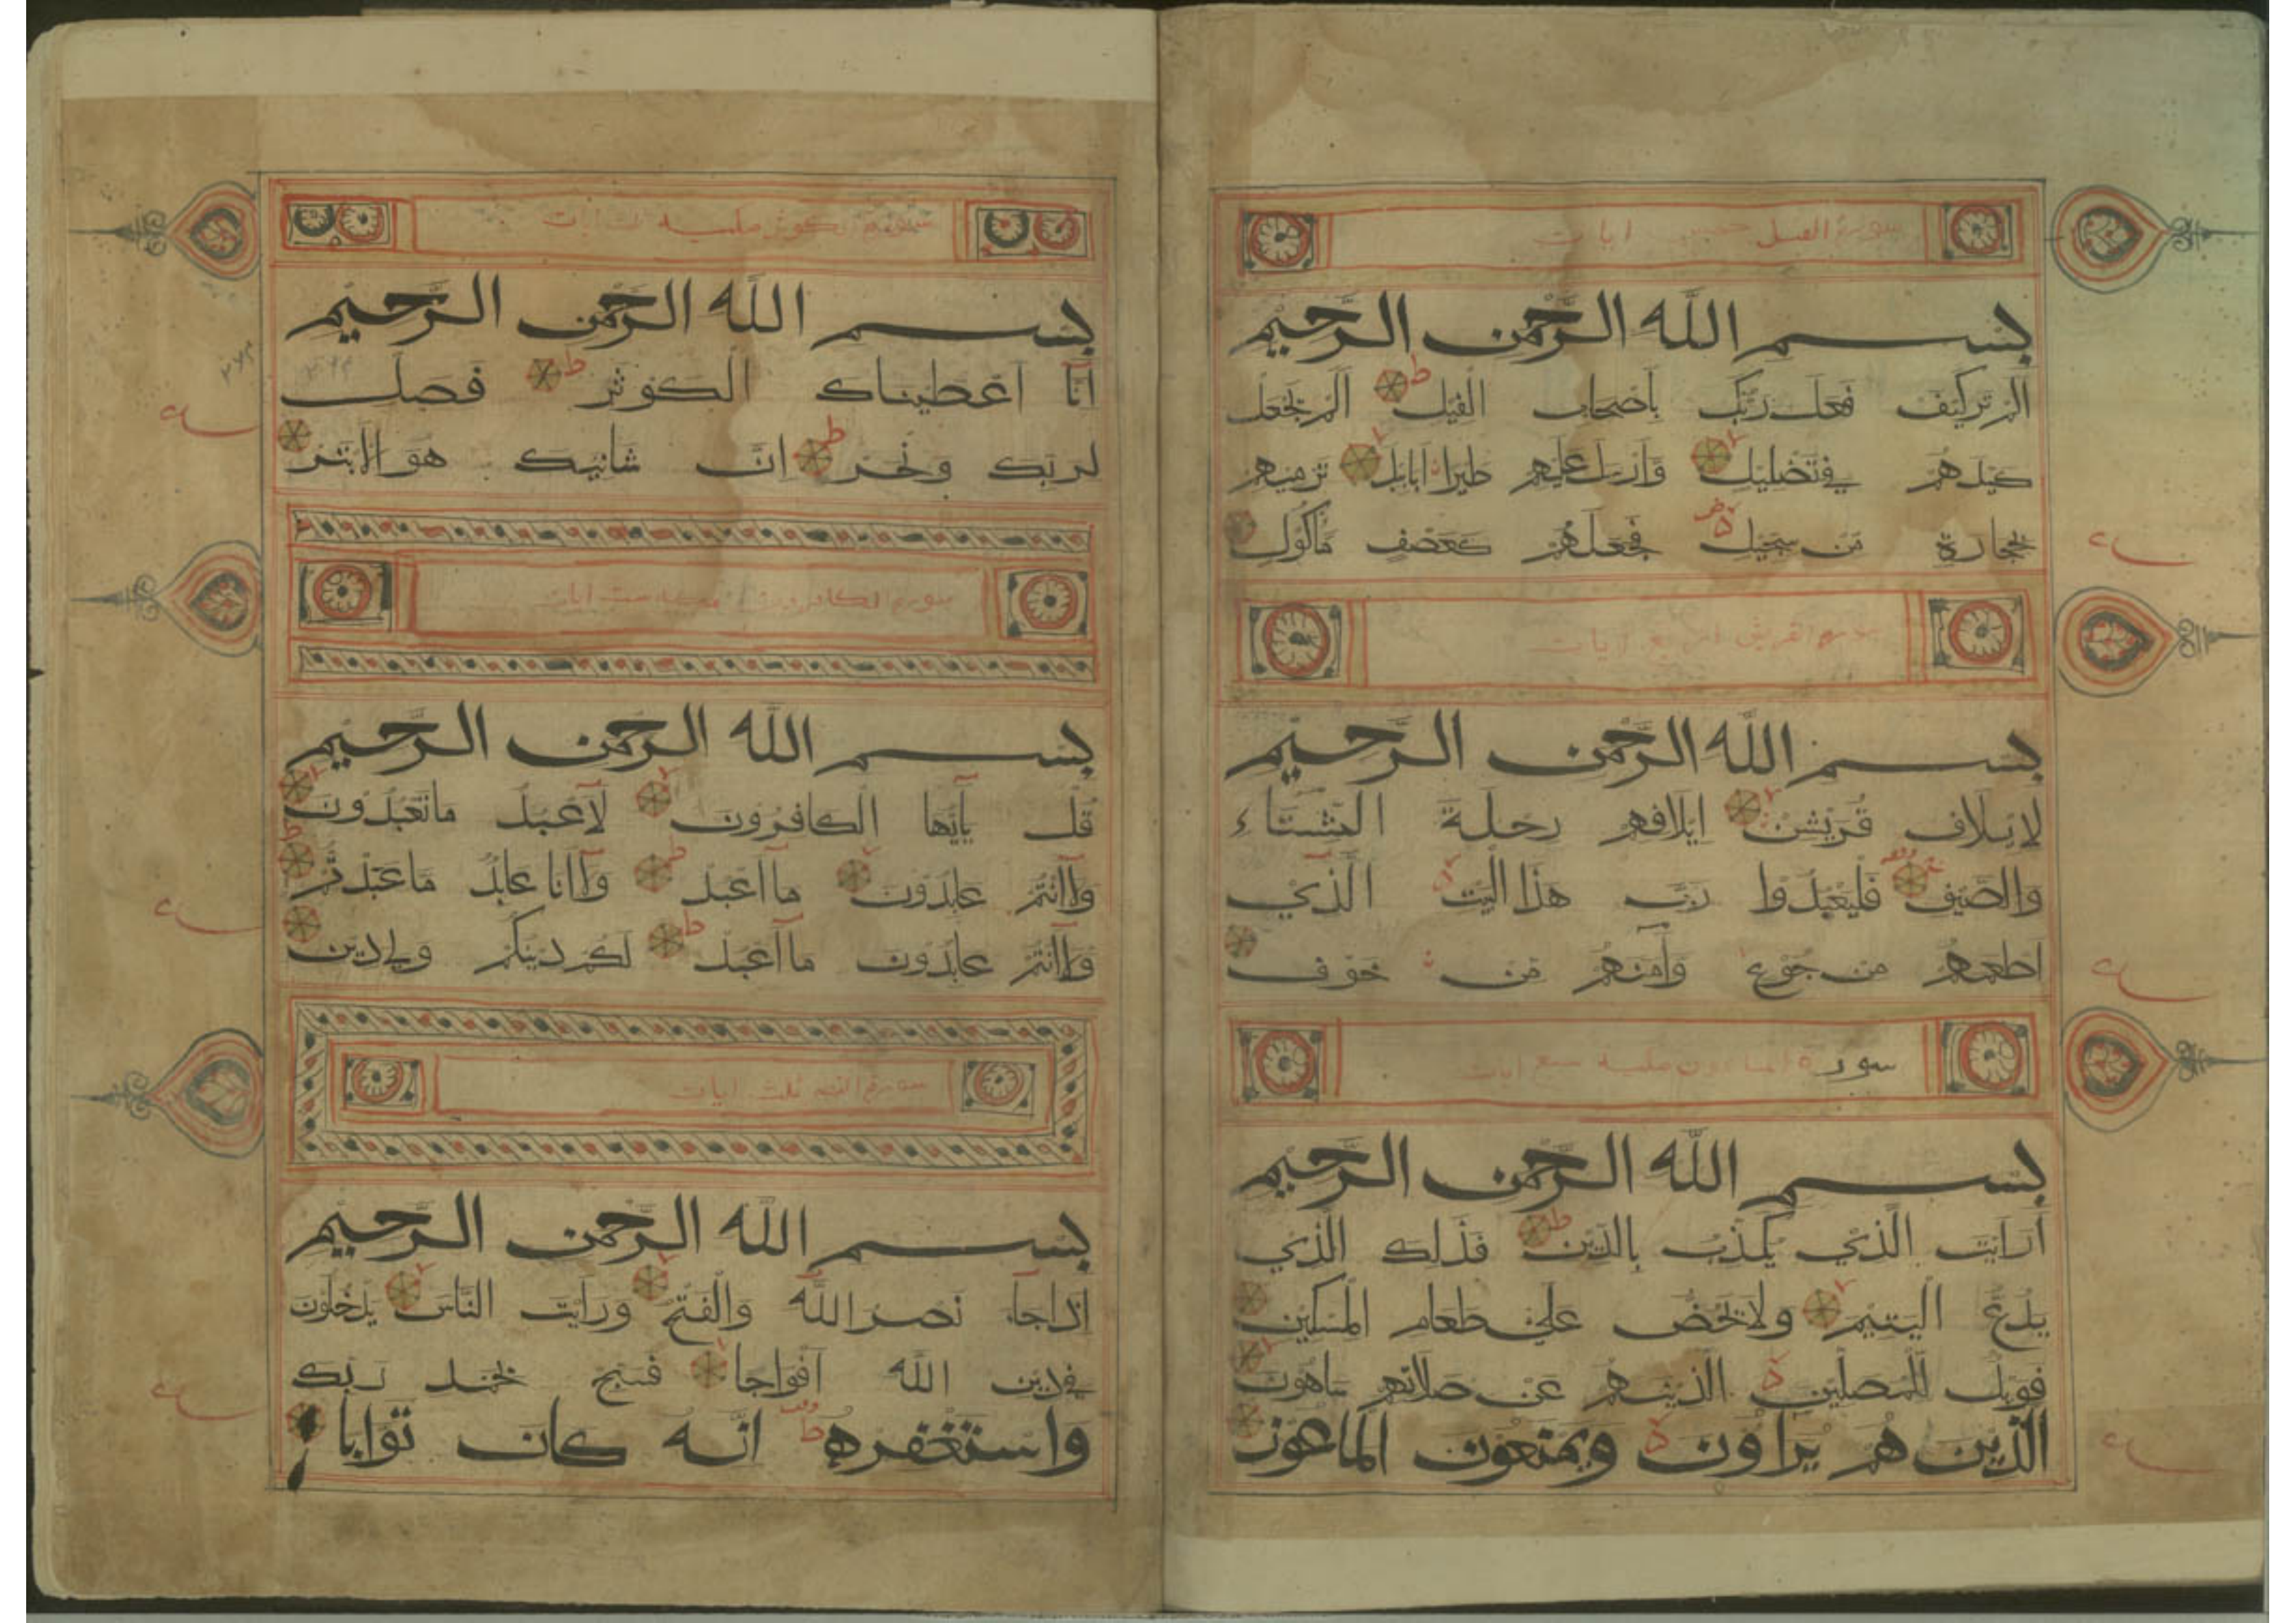 سورة الفيل خمس ايات
بسم الله الرحمن الرحيم
ألم تر كيف فعل ربك بأصحاب الفيل ط ألم يجعل
كيدهم في تضليل وأرسل عليهم طيرا أبابيل ترميهم
بحجارة من سجيل فجعلهم كعصف مأكول
سورة القريش اربع ايات
بسم الله الرحمن الرحيم
لإيلاف قريش إيلافهم رحلة الشتاء
والصيف فليعبدوا رب هذا البيت الذي
اطعمهم من جوع وآمنهم من خوف
سورة الماعون مكية سبع ايات
بسم الله الرحمن الرحيم
أرايت الذي يكذب بالدين ط فذلك الذي
يدع اليتيم ولا يحض على طعام المسكين
فويل للمصلين الذين هم عن صلاتهم ساهون
الذين هم يراؤن ويمنعون الماعون
سورة الكوثر مكية ايات
بسم الله الرحمن الرحيم
انا اعطيناك الكوثر ط فصل
لربك ونحر ط ان شانيك هو الابتر
سورة الكافرون مكية ست ايات
بسم الله الرحمن الرحيم
قل يأيها الكافرون لا اعبد ما تعبدون
ولا انتم عابدون ما اعبد ولا انا عابد ما عبدتم
ولا انتم عابدون ما اعبد ط لكم دينكم ولي دين
سورة النصر ثلث ايات
بسم الله الرحمن الرحيم
اذا جاء نصر الله والفتح ورايت الناس يدخلون
في دين الله افواجا فسبح بحمد ربك
واستغفره ط انه كان توابا